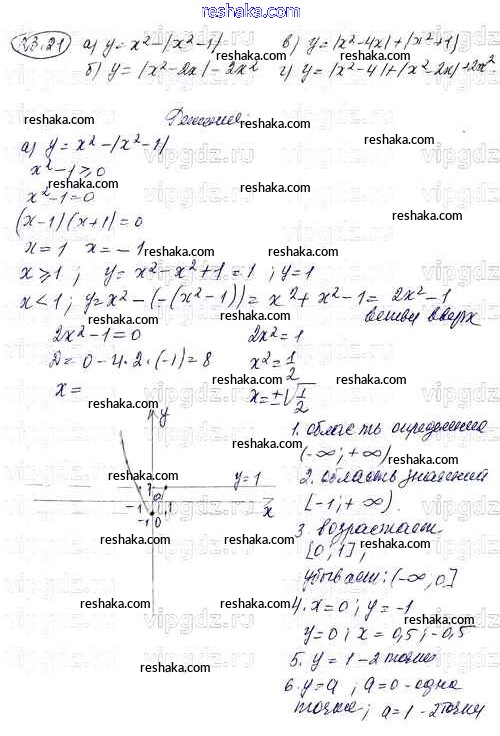 reshaka.com
23.21 а) y = x² - |x² - 1| в) y = |x² - 4x| + |x² + 1|
б) y = |x² - 2x| - 2x² г) y = |x² - 4| + |x² - 2x| + 2x²
Решение.
а) y = x² - |x² - 1|
x² - 1 ≥ 0
x² - 1 = 0
(x-1)(x+1) = 0
x = 1 x = -1
x ≥ 1 ; y = x² - x² + 1 = 1 ; y = 1
x < 1 ; y = x² - (-(x² - 1)) = x² + x² - 1 = 2x² - 1
ветви вверх
2x² - 1 = 0 2x² = 1
D = 0 - 4·2·(-1) = 8 x² = 1/2
x = x = ±√1/2
y
y = 1
x
-1 0 1
-1
1. область определения
(-∞; +∞)
2. область значений
[-1; +∞).
3. возрастает
[0; 1];
убывает: (-∞; 0]
4. x = 0; y = -1
y = 0; x = 0,5; -0,5
5. y = 1 - 2 точки
6. y = a; a = 0 - одна
точка; a = 1 - 2 точки